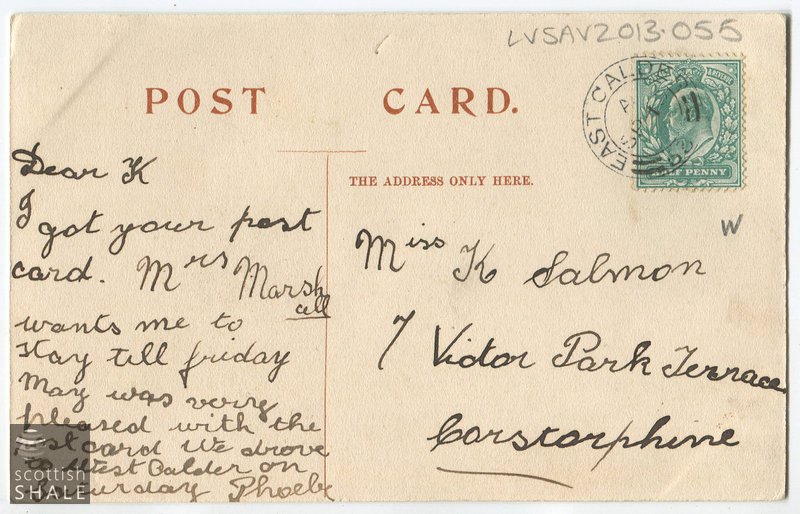 LVSAV2013.055
POST CARD.
EAST CALDER
HALF PENNY
THE ADDRESS ONLY HERE.
W
Dear K
I got your post
card. Mrs Marsh
all
wants me to
stay till friday
May was very
pleased with the
post card We drove
to West Calder on
Saturday Phoebe
Miss K Salmon
7 Victor Park Terrace
Corstorphine
scottish
SHALE